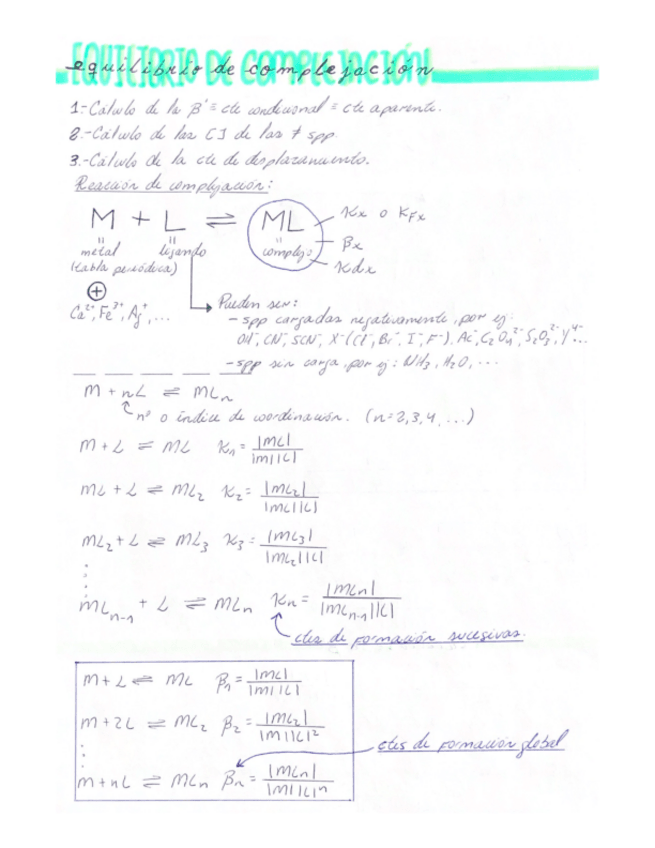 EQUILIBRIO DE COMPLEJACIÓN
equilibrio de complejación
1.- Cálculo de la β' ≡ cte condicional ≡ cte aparente.
2.- Cálculo de las [ ] de las ≠ spp.
3.- Cálculo de la cte de desplazamiento.
Reacción de complejación:
M + L ⇌ ML
Kx o KFx
βx
Kdx
metal
(tabla periódica)
ligando
complejo
⊕
Ca²⁺, Fe³⁺, Ag⁺, ...
Pueden ser:
- spp cargadas negativamente, por ej:
OH⁻, CN⁻, SCN⁻, X⁻ (Cl⁻, Br⁻, I⁻, F⁻), Ac⁻, C₂O₄²⁻, S₂O₃²⁻, Y⁴⁻...
- spp sin carga, por ej: NH₃, H₂O, ...
M + nL ⇌ MLn
nº o índice de coordinación. (n=2,3,4, ...)
M + L ⇌ ML K₁ = |ML| / |M||L|
ML + L ⇌ ML₂ K₂ = |ML₂| / |ML||L|
ML₂ + L ⇌ ML₃ K₃ = |ML₃| / |ML₂||L|
MLn-1 + L ⇌ MLn Kn = |MLn| / |MLn-1||L|
ctes de formación sucesivas.
M + L ⇌ ML β₁ = |ML| / |M||L|
M + 2L ⇌ ML₂ β₂ = |ML₂| / |M||L|²
ctes de formación global
M + nL ⇌ MLn βn = |MLn| / |M||L|ⁿ